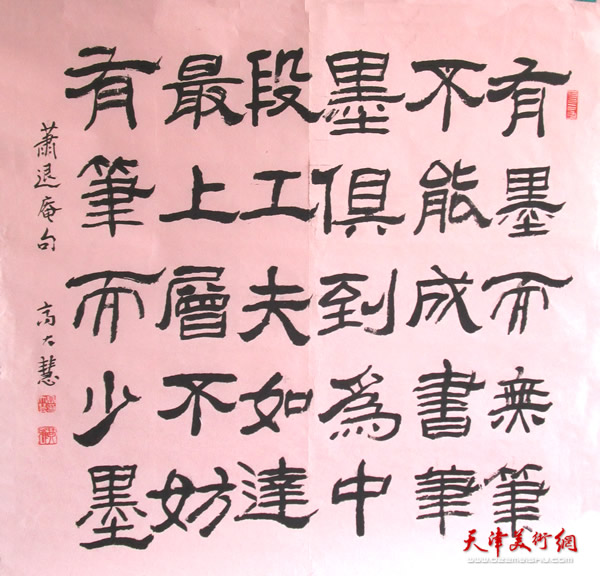 有墨而無筆
不能成書筆
墨俱到為中
段工夫如達
最上層不妨
有筆而少墨
蕭退庵句 高大慧
天津美術網